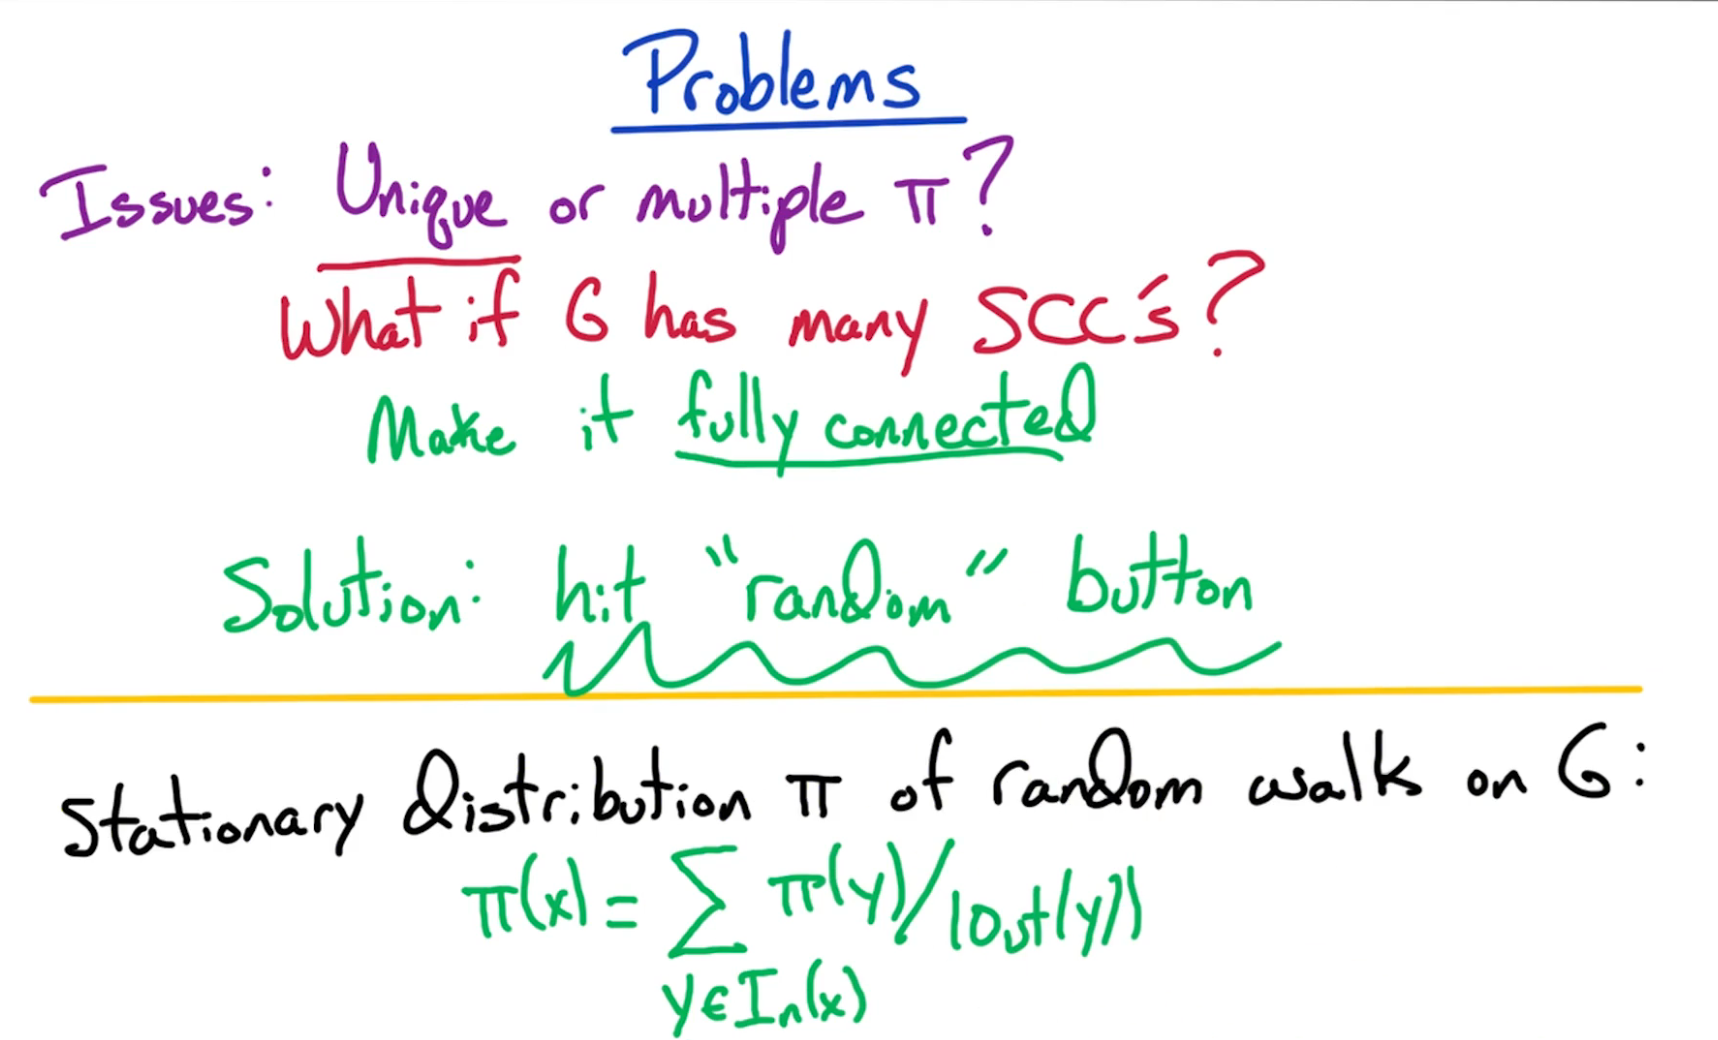 Problems
Issues: Unique or multiple π?
What if G has many SCC's?
Make it fully connected
Solution: hit "random" button
Stationary distribution π of random walk on G:
π(x) = ∑ π(y)/|Out(y)|
y∈In(x)